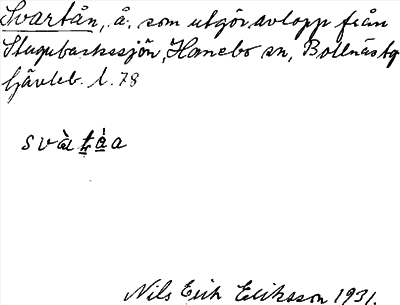 Svartån, å. som utgör avlopp från
Stugubackssjön, Hanebo sn, Bollnästg
Gävleb. l. 78
svàtáa
Nils Erik Eriksson 1931.